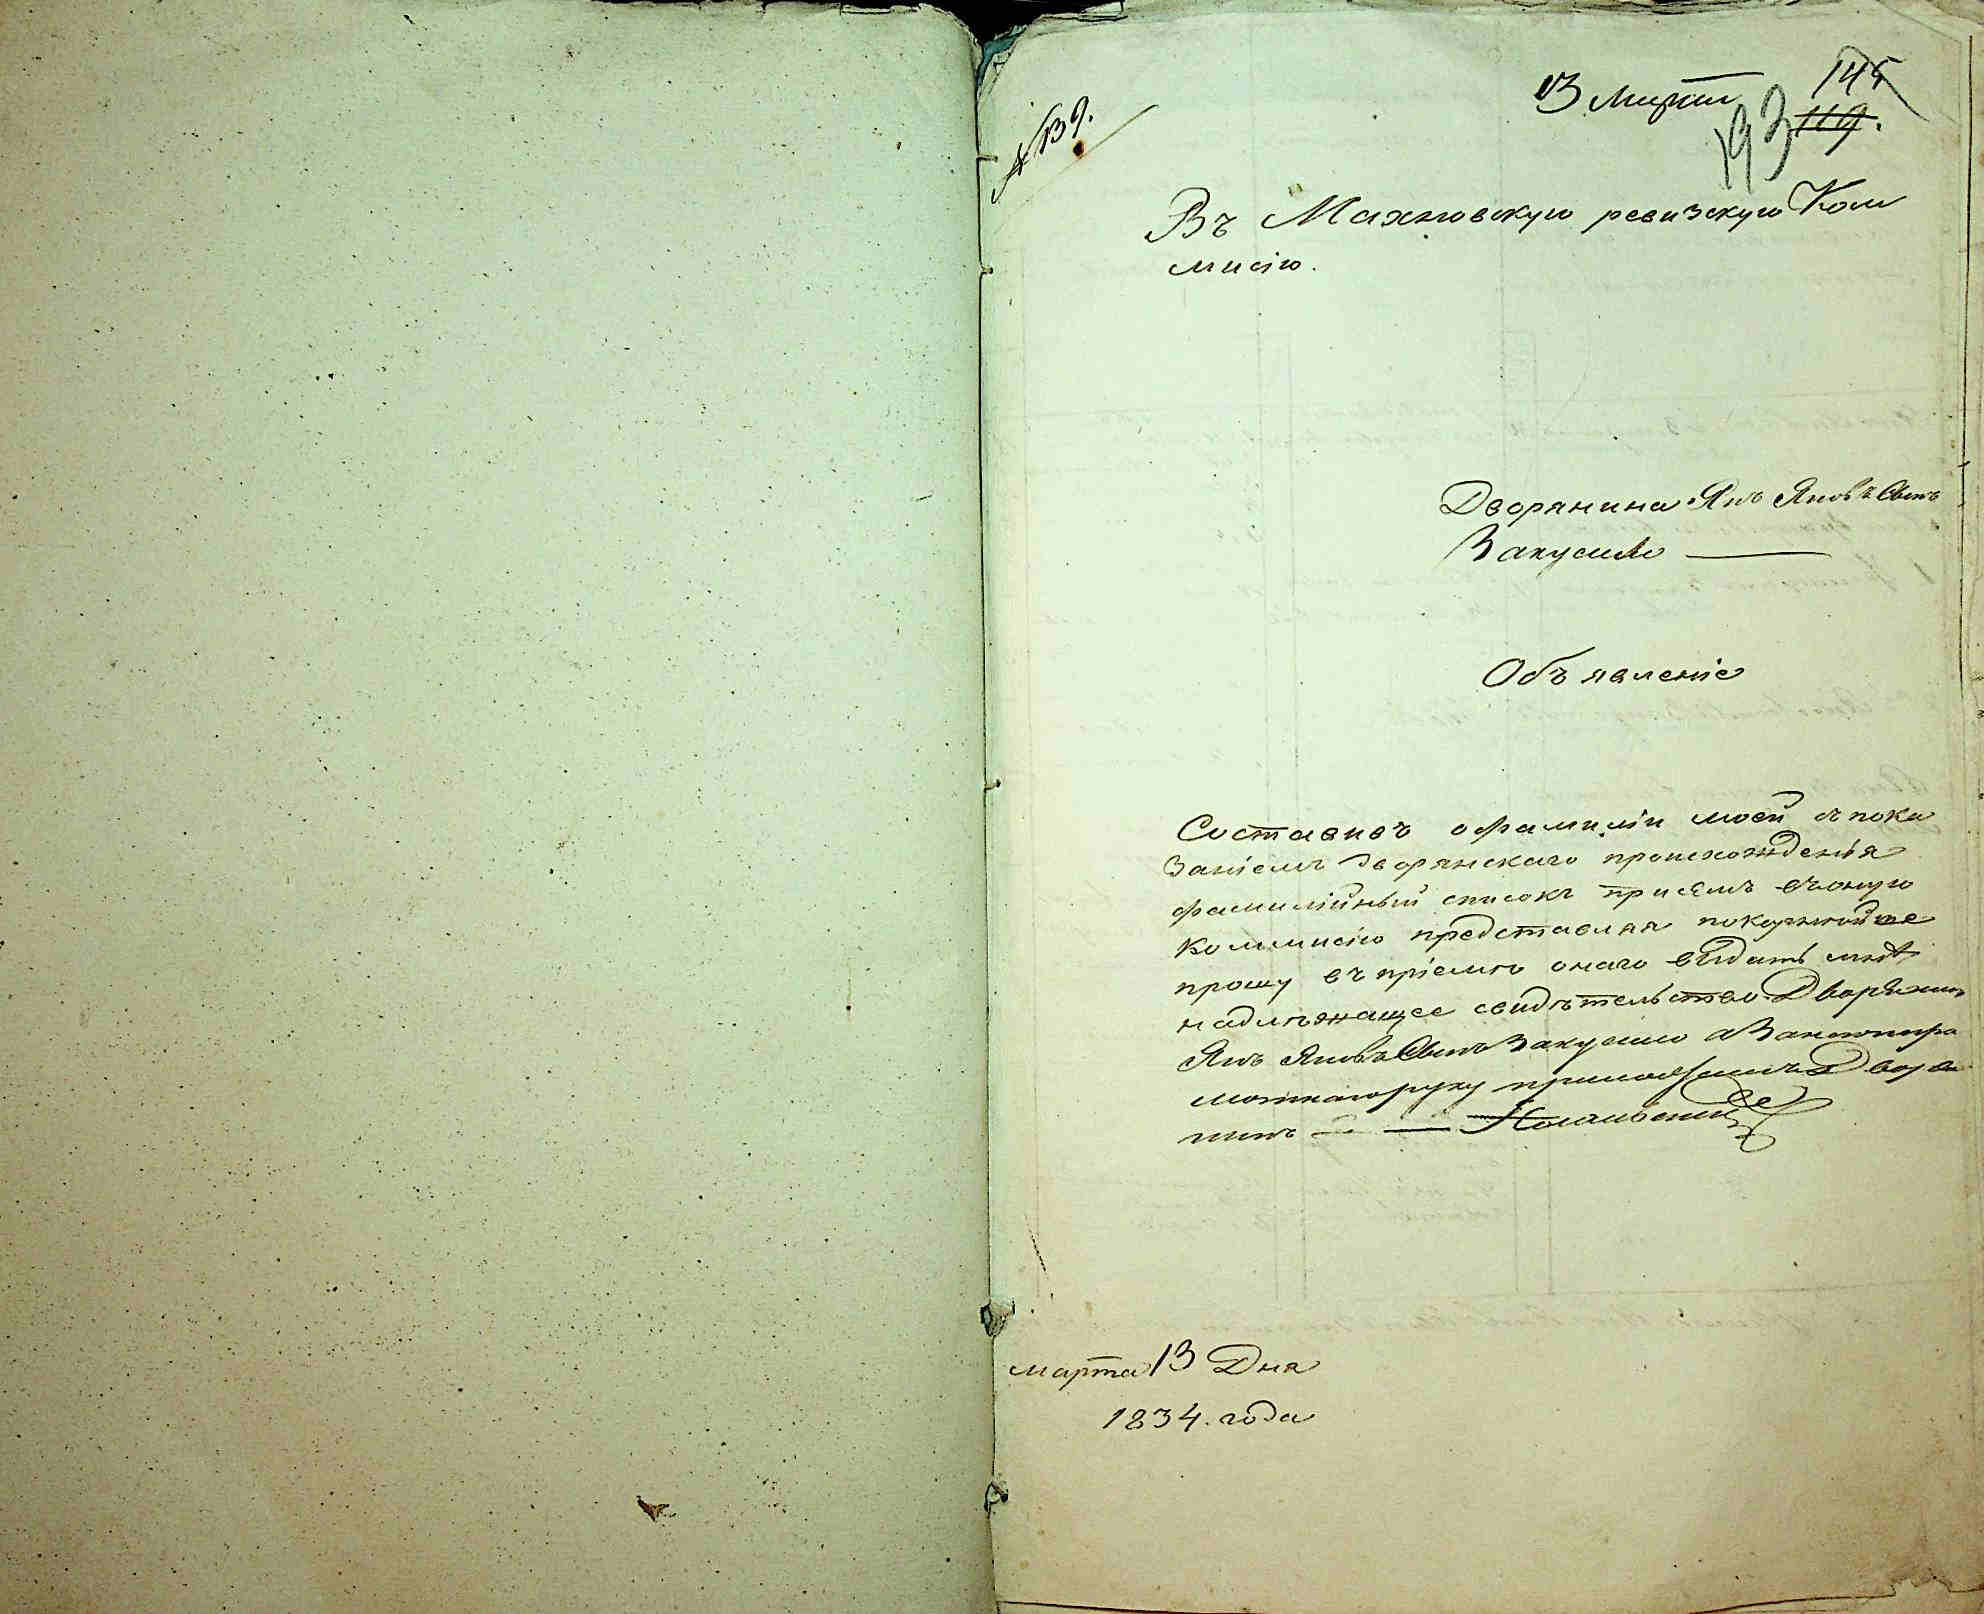 № 139.
13 Марта
145
119.
193
Въ Махновскую ревизскую Ком
мисію.
Дворянина Янъ Яковъ Сынъ
Закусило
Объявленіе
Составивъ офамиліи моей съ пока
заніемъ дворянскаго происхожденія
фамилійный списокъ присемъ въоную
Коммисію представляя покорнюйше
прошу въ пріемю онаго выдать мнѣ
надлѣжащее свидѣтельство Дворянинъ
Янъ Яковъ Сынъ Закусило а Занегра
мотнагоруку приложилъ Дворя
нинъ
марта 13 Дня
1834. года